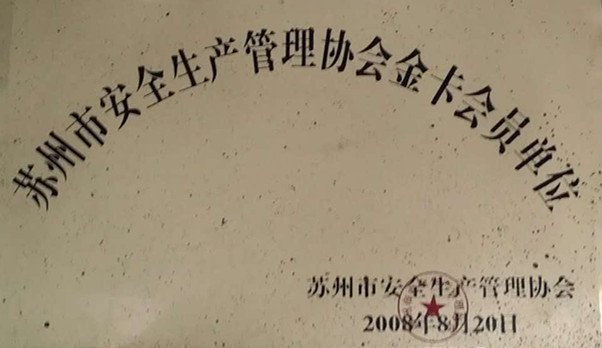 苏州市安全生产管理协会金卡会员单位
苏州市安全生产管理协会
2008年8月20日